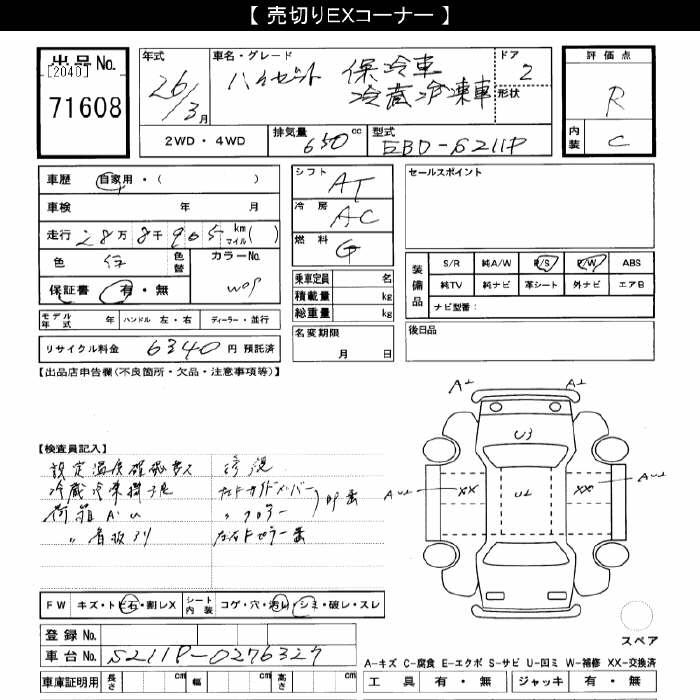 【 売切りEXコーナー 】
出品No.
[2040]
71608
年式
26/3月
車名・グレード
ハイゼット 保冷車
冷蔵冷凍車
ドア
2
形状
2WD・4WD
排気量 650 cc
型式 EBD-S211P
評価点
R
内装
C
車歴 自家用・( )
車検 年 月
走行 28万8千905 km マイル( )
色
色替
カラーNo.
W09
保証書 有・無
モデル年式 年 ハンドル 左・右 ディーラー・並行
リサイクル料金 6340 円 預託済
シフト AT
冷房 AC
燃料 G
乗車定員 名
積載量 kg
総重量 kg
名変期限
月 日
セールスポイント
装備品
S/R 純A/W P/S P/W ABS
純TV 純ナビ 革シート 外ナビ エアB
ナビ型番:
後日品
【出品店申告欄(不良箇所・欠品・注意事項等)】
【検査員記入】
設定温度確認 修復
冷蔵冷凍
荷箱 AU
A1 A1
U3
AU2 XX U2 XX AU2
FW キズ・ト・ビ石・割レX シート内装 コゲ・穴・汚レ・シミ・破レ・スレ
登録No.
車台No. S211P-0276327
車庫証明用 長さ cm 幅 cm 高さ cm
スペア
A-キズ C-腐食 E-エクボ S-サビ U-凹ミ W-補修 XX-交換済
工具 有・無 ジャッキ 有・無